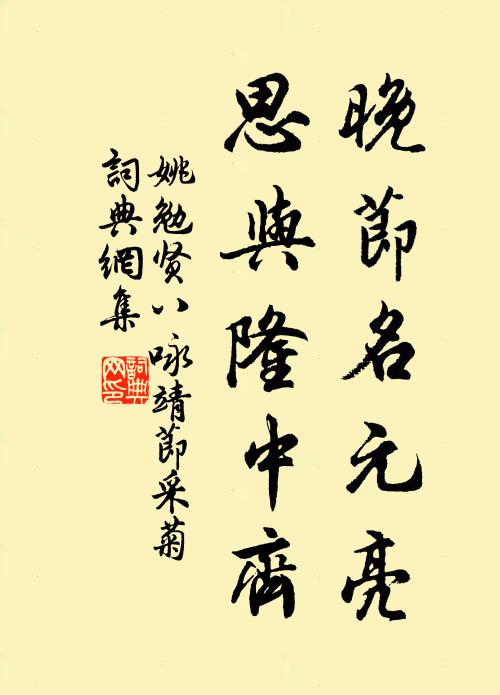 晚節名元亮
思與隆中齊
姚勉賢八咏靖節采菊
詞典網集
詞典網印